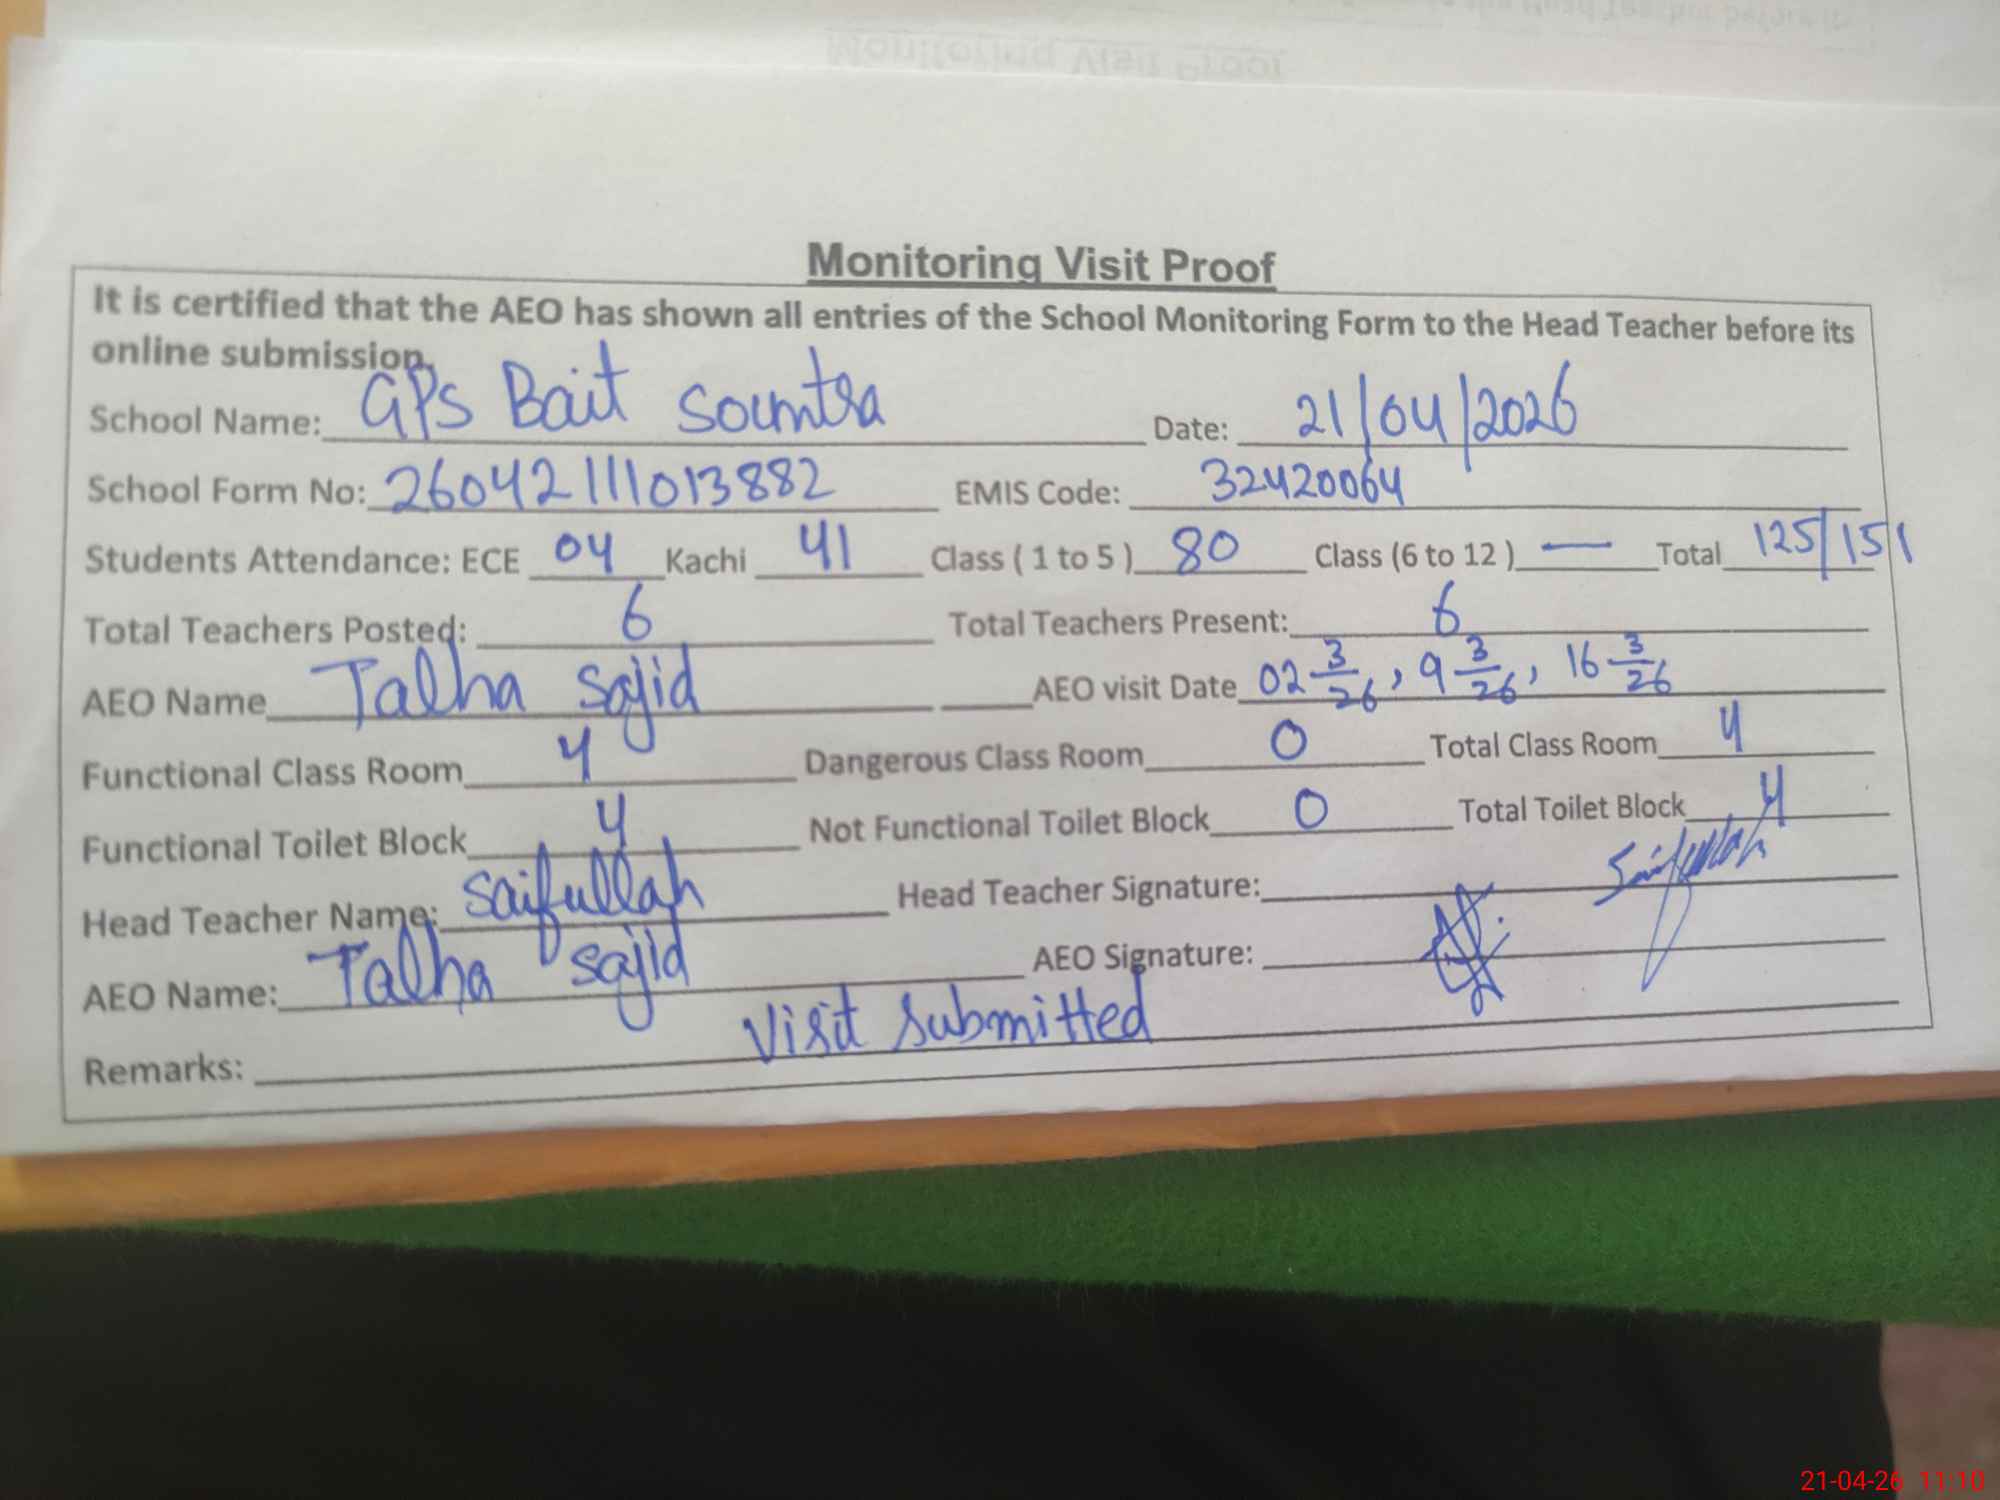 Monitoring Visit Proof
It is certified that the AEO has shown all entries of the School Monitoring Form to the Head Teacher before its
online submission.
School Name: GPS Bait Soumtra Date: 21/04/2026
School Form No: 26042111013882 EMIS Code: 32420064
Students Attendance: ECE 04 Kachi 41 Class ( 1 to 5 ) 80 Class (6 to 12 ) — Total 125/151
Total Teachers Posted: 6 Total Teachers Present: 6
AEO Name Talha Sajid AEO visit Date 02 3/26, 9 3/26, 16 3/26
Functional Class Room 4 Dangerous Class Room 0 Total Class Room 4
Functional Toilet Block 4 Not Functional Toilet Block 0 Total Toilet Block 4
Head Teacher Name: Saifullah Head Teacher Signature: Saifullah
AEO Name: Talha Sajid AEO Signature:
Remarks: Visit Submitted
21-04-26 11:10